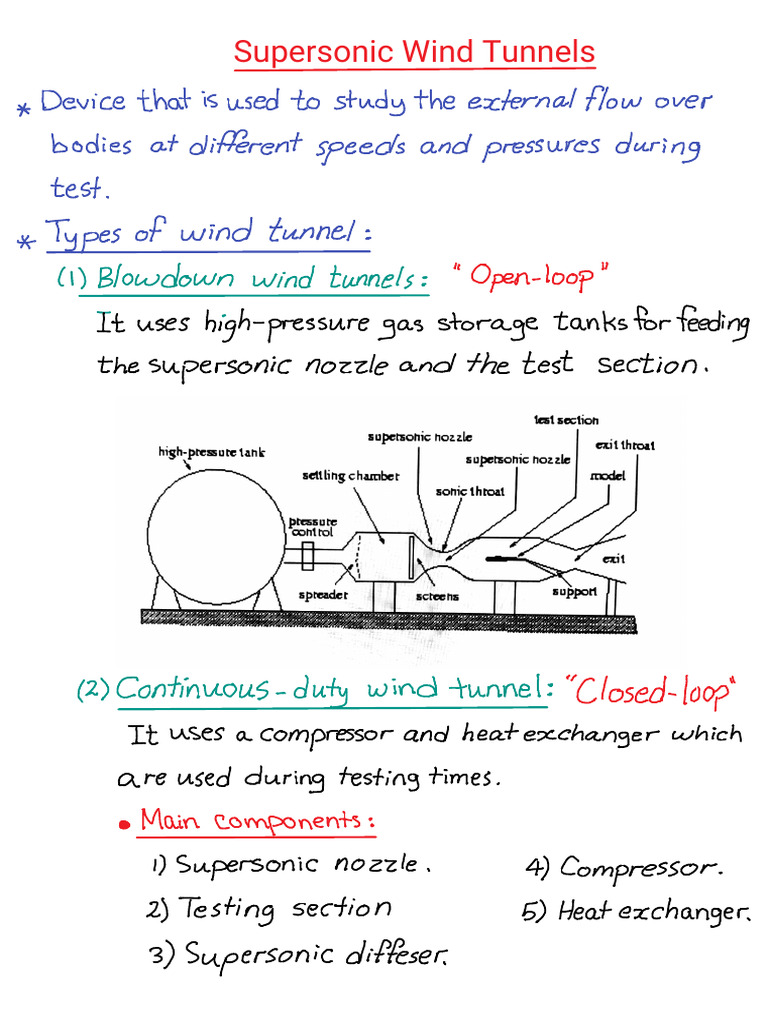 Supersonic Wind Tunnels
* Device that is used to study the external flow over
bodies at different speeds and pressures during
test.
* Types of wind tunnel:
(1) Blowdown wind tunnels: "Open-loop"
It uses high-pressure gas storage tanks for feeding
the supersonic nozzle and the test section.
test section
supersonic nozzle
exit throat
high-pressure tank
supersonic nozzle
settling chamber
model
sonic throat
pressure
control
exit
spreader
screens
support
(2) Continuous-duty wind tunnel: "Closed-loop"
It uses a compressor and heat exchanger which
are used during testing times.
• Main components:
1) Supersonic nozzle.
4) Compressor.
2) Testing section
5) Heat exchanger.
3) Supersonic diffeser.